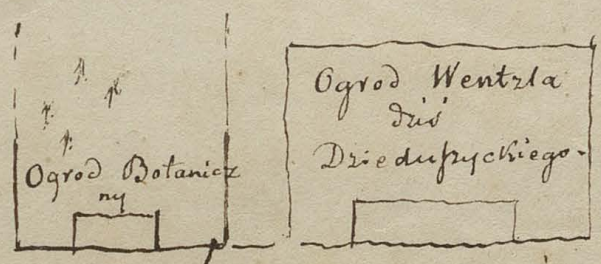 Ogrod Botanicz
ny
Ogrod Wentzla
dziś
Dzieduszyckiego.